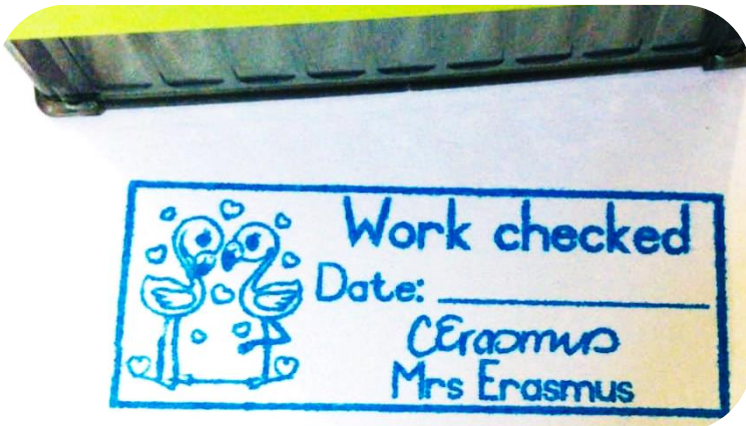 Work checked
Date: ____________
CErasmus
Mrs Erasmus